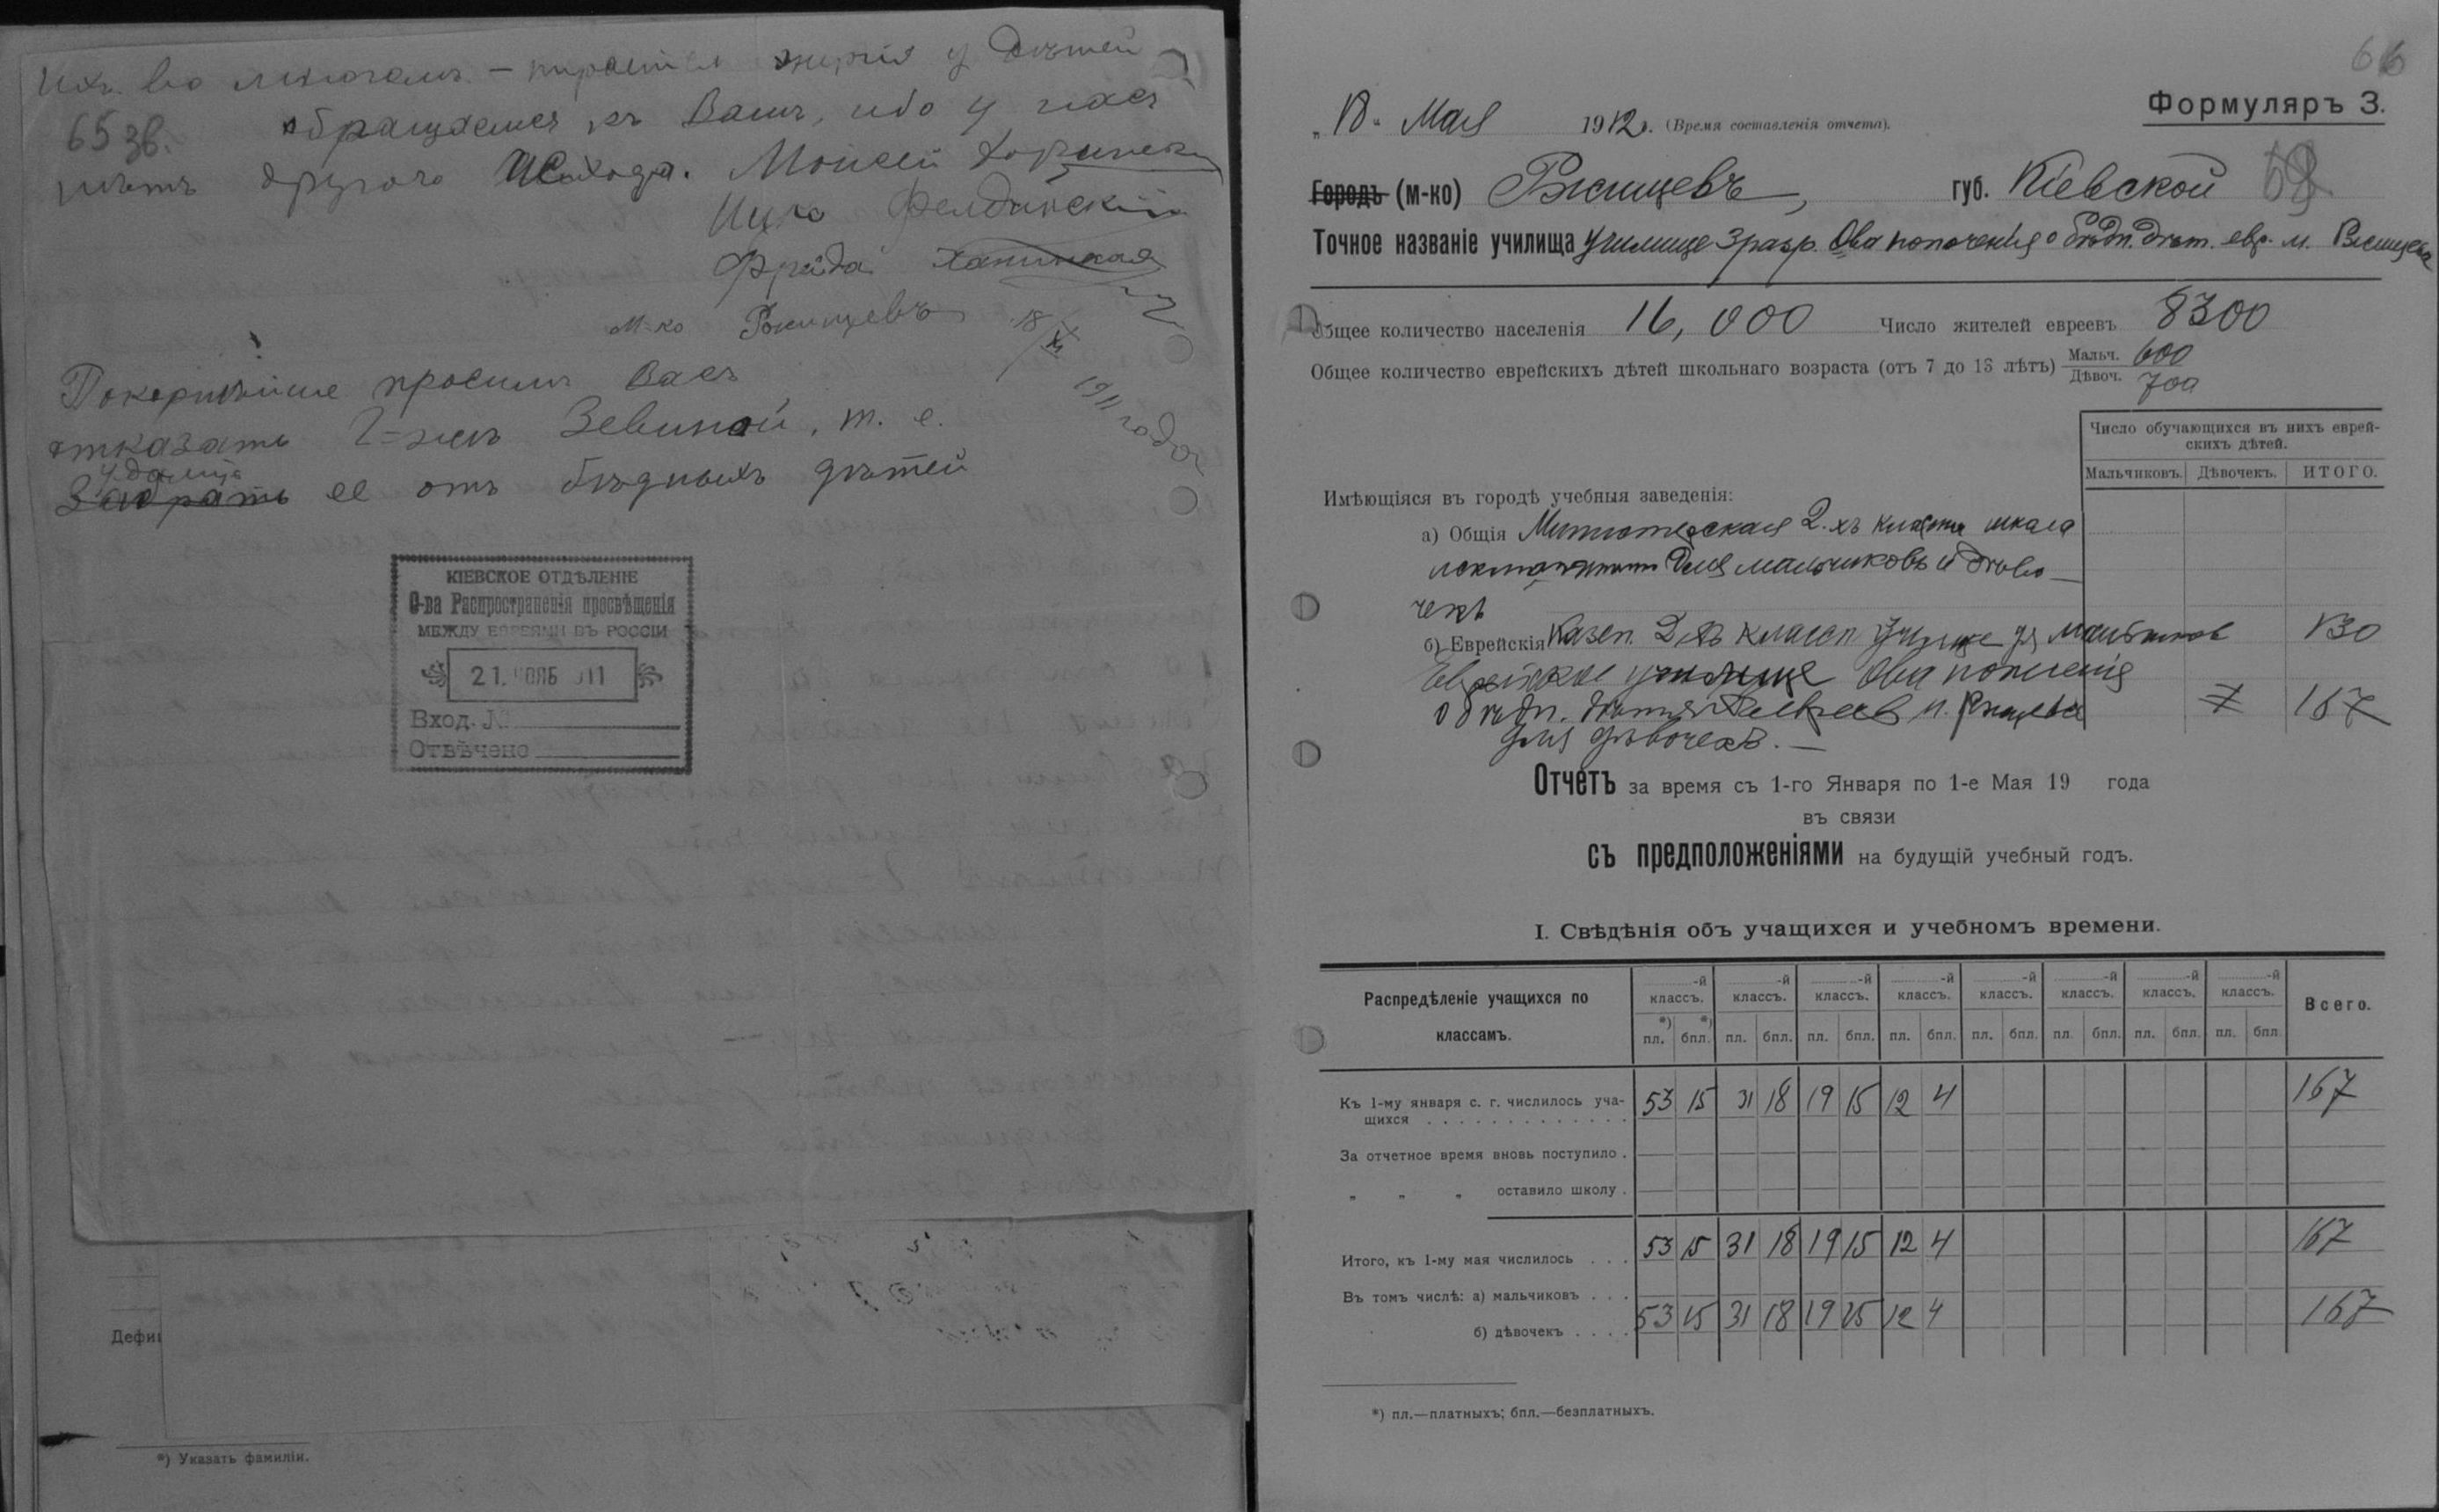 ихъ во многомъ. – у дѣтей
65 зв.
обращаемся къ Вамъ, ибо у насъ
нѣтъ другого исхода. Моисей
Ицко
Фрейда
м-ко Ржищевъ 18/XI 1911 года
Покорнѣйше просимъ Васъ
отказать г-жѣ Зевиной, т. е.
удалить
Забрать ее отъ бѣдныхъ дѣтей
КІЕВСКОЕ ОТДѢЛЕНІЕ
О-ва Распространенія просвѣщенія
МЕЖДУ ЕВРЕЯМИ ВЪ РОССІИ
21. НОЯБ 911
Вход. №
Отвѣчено
Дефи
*) Указать фамиліи.
66
Формуляръ 3.
„18“ Мая 1912 г. (Время составленія отчета).
Городъ (м-ко) Ржищевъ, губ. Кіевской
Точное названіе училища Училище 3 разр. О-ва попеченія о бѣдн. дѣт. евр. м. Ржищева
Общее количество населенія 16,000 Число жителей евреевъ 8300
Общее количество еврейскихъ дѣтей школьнаго возраста (отъ 7 до 13 лѣтъ) Мальч. 600
Дѣвоч. 700
Число обучающихся въ нихъ еврей-
скихъ дѣтей.
Мальчиковъ. Дѣвочекъ. ИТОГО.
Имѣющіяся въ городѣ учебныя заведенія:
а) Общія Министерская 2-хъ класная школа
для мальчиковъ и дѣво-
чекъ
б) Еврейскія Казен. 2-хъ класн училище для мальчиков 130
Еврейское училище О-ва попеченія
о бѣдн. дѣтях евреев м. Ржищева 167
для дѣвочекъ. —
Отчетъ за время съ 1-го Января по 1-е Мая 19 года
въ связи
съ предположеніями на будущій учебный годъ.
I. Свѣдѣнія объ учащихся и учебномъ времени.
Распредѣленіе учащихся по классамъ.
-й классъ. -й классъ. -й классъ. -й классъ. -й классъ. -й классъ. -й классъ. -й классъ. Всего.
*) пл. *) бпл. пл. бпл. пл. бпл. пл. бпл. пл. бпл. пл. бпл. пл. бпл. пл. бпл.
Къ 1-му января с. г. числилось уча-
щихся 53 15 31 18 19 15 12 4 167
За отчетное время вновь поступило .
„ „ „ оставило школу .
Итого, къ 1-му мая числилось . . . 53 15 31 18 19 15 12 4 167
Въ томъ числѣ: а) мальчиковъ . . .
б) дѣвочекъ . . . . 53 15 31 18 19 15 12 4 167
*) пл.—платныхъ; бпл.—безплатныхъ.